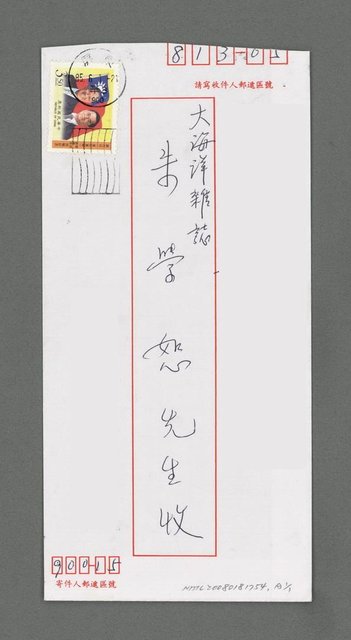 813-05
請寫收件人郵遞區號
大海洋雜誌
朱學恕先生收
90015
寄件人郵遞區號
NMTL20080181754